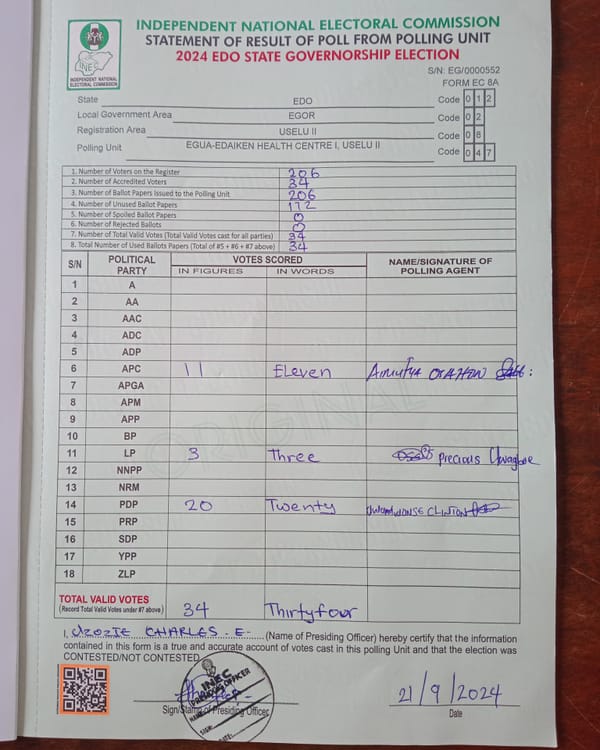 INDEPENDENT NATIONAL ELECTORAL COMMISSION
STATEMENT OF RESULT OF POLL FROM POLLING UNIT
2024 EDO STATE GOVERNORSHIP ELECTION
INEC
INDEPENDENT NATIONAL ELECTORAL COMMISSION
S/N: EG/0000552
FORM EC 8A
State EDO Code 0 1 2
Local Government Area EGOR Code 0 2
Registration Area USELU II Code 0 8
Polling Unit EGUA-EDAIKEN HEALTH CENTRE I, USELU II Code 0 4 7
1. Number of Voters on the Register 206
2. Number of Accredited Voters 34
3. Number of Ballot Papers Issued to the Polling Unit 206
4. Number of Unused Ballot Papers 172
5. Number of Spoiled Ballot Papers 0
6. Number of Rejected Ballots 0
7. Number of Total Valid Votes (Total Valid Votes cast for all parties) 34
8. Total Number of Used Ballots Papers (Total of #5 + #6 + #7 above) 34
S/N POLITICAL PARTY VOTES SCORED NAME/SIGNATURE OF POLLING AGENT
IN FIGURES IN WORDS
1 A
2 AA
3 AAC
4 ADC
5 ADP
6 APC 11 Eleven
7 APGA
8 APM
9 APP
10 BP
11 LP 3 Three Precious
12 NNPP
13 NRM
14 PDP 20 Twenty CLINTON
15 PRP
16 SDP
17 YPP
18 ZLP
ORIGINAL
TOTAL VALID VOTES
(Record Total Valid Votes under #7 above) 34 Thirtyfour
I, UZOZIE CHARLES - E- (Name of Presiding Officer) hereby certify that the information
contained in this form is a true and accurate account of votes cast in this polling Unit and that the election was
CONTESTED/NOT CONTESTED.
INEC
PRESIDING OFFICER
21/9/2024
Sign/Stamp of Presiding Officer Date